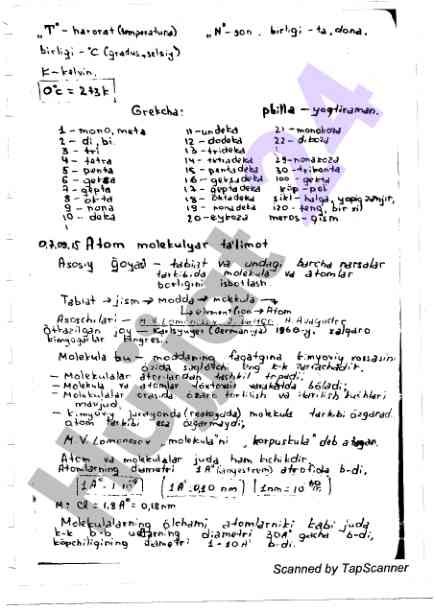 „T" - harorat (temperatura) „N" - son, birligi - ta, dona.
birligi - °C (gradus, selsiy)
K - kelvin.
0°c = 273k
Grekcha: philla - yoqtiraman.
1 - mono, meta 11 - undeka 21 -
2 - di, bi. 12 - dodeka 22 -
3 - tri 13 - trideka
4 - tetra 14 - tetradeka
5 - penta 15 - pentadeka 30 -
6 - geksa 16 - geksadeka 100 - gekta
7 - gepta 17 - geptadeka ko'p - poli
8 - okta 18 - oktadeka sikl - halqa, yopiq zanjir,
9 - nona 19 - nonadeka izo - teng, bir xil
10 - deka 20 - eykoza meros - qism
07.09.15 Atom molekulyar ta'limot
Asosiy g'oyasi - tabiat va undagi barcha narsalar
tarkibida molekula va atomlar
borligini isbotlash.
Tabiat → jism → modda → molekula →
element (ion) → Atom
Asoschilari - M.V. Lomonosov, J. Dalton, A. Avagadro
O'tkazilgan joy - Karlsyuger (Germaniya) 1960-y, xalqaro
kimyogarlar kongres.
Molekula bu - moddaning faqatgina kimyoviy xossasini
o'zida saqlovchi eng k-k zarrachadir.
- Molekulalar atomlardan tashkil topadi;
- Molekula va atomlar to'xtovsiz harakatda bo'ladi;
- Molekulalar orasida o'zaro tortilish va itarilish kuchlari
mavjud;
- kimyoviy jarayonda (reaksiyada) molekula tarkibi o'zgaradi
atom tarkibi esa o'zgarmaydi;
M.V. Lomonosov molekula'ni „korpuskula" deb atagan.
Atom va molekulalar juda ham kichikdir.
Atomlarning diametri 1A° (angestrem) atrofida b-di,
1A° = 10⁻⁸ 1A° = 0,10 nm 1nm = 10
M: Cl = 1,8A° = 0,18nm
Molekulalarning o'lchami atomlarniki kabi juda
k-k b-b ularning diametri 30A° gacha b-di,
ko'pchiligining diametri 1-10A° b-di.
Scanned by TapScanner